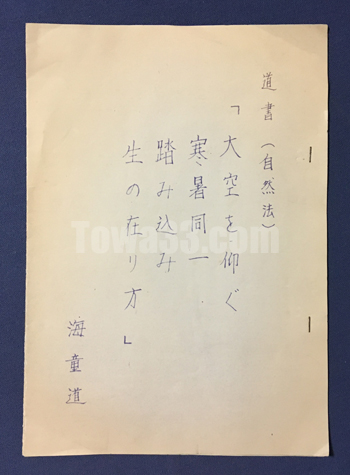 道書（自然法）
「大空を仰ぐ
寒暑同一
踏み込み
生の在り方」
海童道
Towa33.com